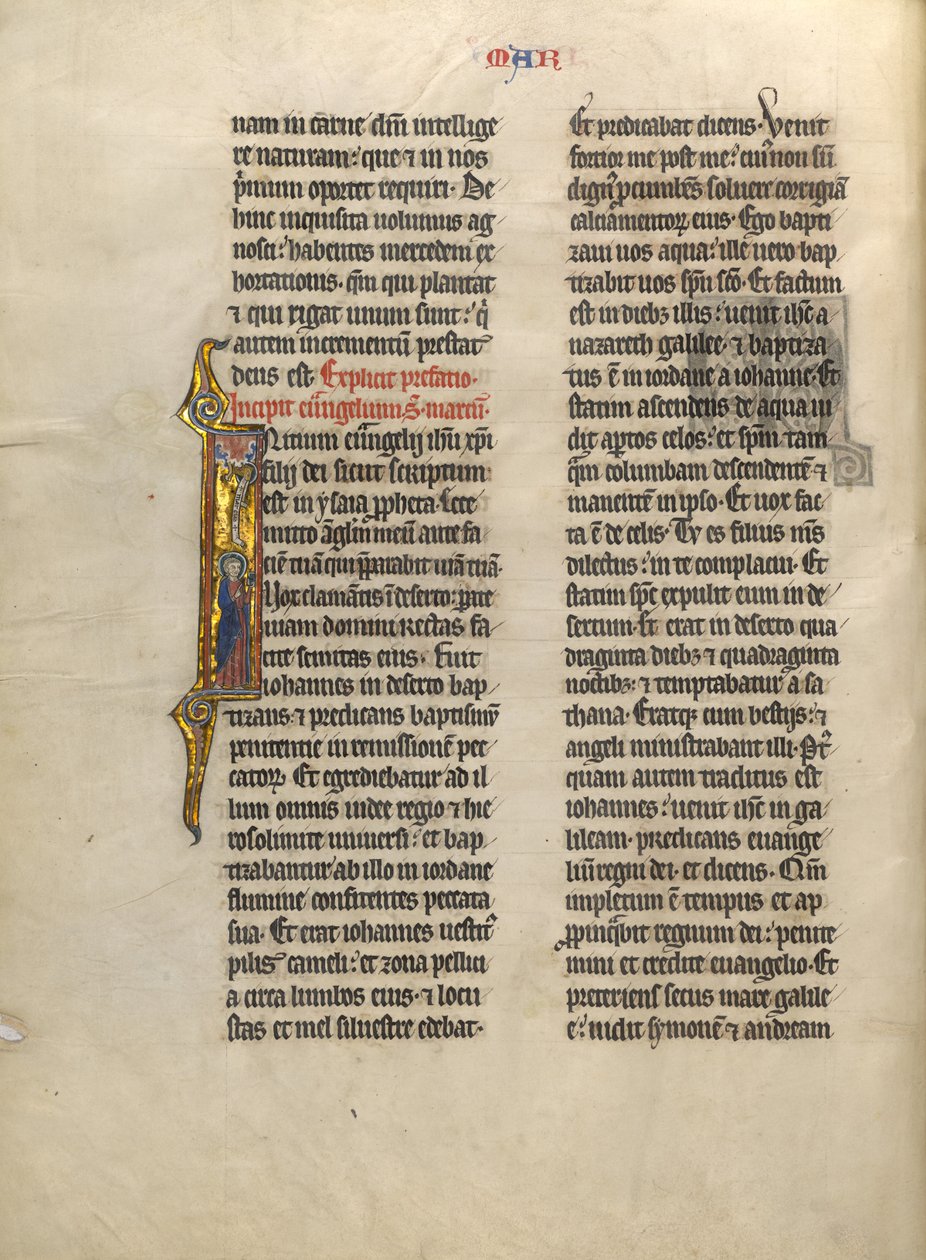 MAR
nam in carne dm̄ intellige
re naturam: que ⁊ in nos
p̄mum oportet requiri. De
hinc inquisita uolumus ag
nosci: habentes mercedem ex
hortationis. qm̄ qui plantat
⁊ qui rigat unum sunt: qͥ
autem incrementū prestat
deus est. Explicit prefatio.
Incipit euͣngelium .S. marcū.
INitium euͣngelij ihū xpī
filij dei sicut scriptum
est in ysaia ꝓpheta. Ecce
mitto āgl̄m meū ante fa
ciē tuā qui p̄parabit uiā tuā.
Vox clamātis ī deserto: parate
uiam domini rectas fa
cite semitas eius. Fuit
iohannes in deserto bap
tizans: ⁊ predicans baptismū
penitentie in remissionē pec
catoꝝ. Et egrediebatur ad il
lum omnis iudee regio ⁊ hie
rosolimite uniuersi: et bap
tizabantur ab illo in iordane
flumine confitentes peccata
sua. Et erat iohannes uestitꝰ
pilis cameli: et zona pellici
a circa lumbos eius. ⁊ locu
stas et mel siluestre edebat.
Et predicabat dicens. Venit
fortior me post me: cuiꝰ non sū
dignꝰ ꝓcumbēs soluere corrigiā
calciamentoꝝ eius. Ego bapti
zaui uos aqua: ille uero bap
tizabit uos spū scō. Et factum
est in diebꝫ illis: uenit ihc̄ a
nazareth galilee. ⁊ baptiza
tus ē in iordane a iohanne. Et
statim ascendens de aqua ui
dit apertos celos: et sp̄m tam
qͣm columbam descendentē ⁊
manentē in ipso. Et uox fac
ta ē de celis. Tv es filius ms̄
dilectus: in te complacui. Et
statim spc̄ expulit eum in de
sertum. Et erat in deserto qua
draginta diebꝫ ⁊ quadraginta
noctibꝫ: ⁊ temptabatur a sa
thana. Eratqꝫ cum bestijs: ⁊
angeli ministrabant illi. Ptꝰ
quam autem traditus est
iohannes: uenit ihc̄ in ga
lileam. predicans euange
liū regni dei. et dicens. Qm̄
impletum ē tempus et ap
ꝓpinqͣbit regnum dei: penite
mini et credite euangelio. Et
preteriens secus mare galile
e: uidit symonē ⁊ andream